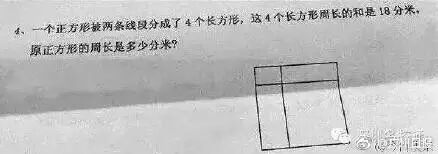 4、一个正方形被两条线段分成了4个长方形，这4个长方形周长的和是18分米，
原正方形的周长是多少分米？